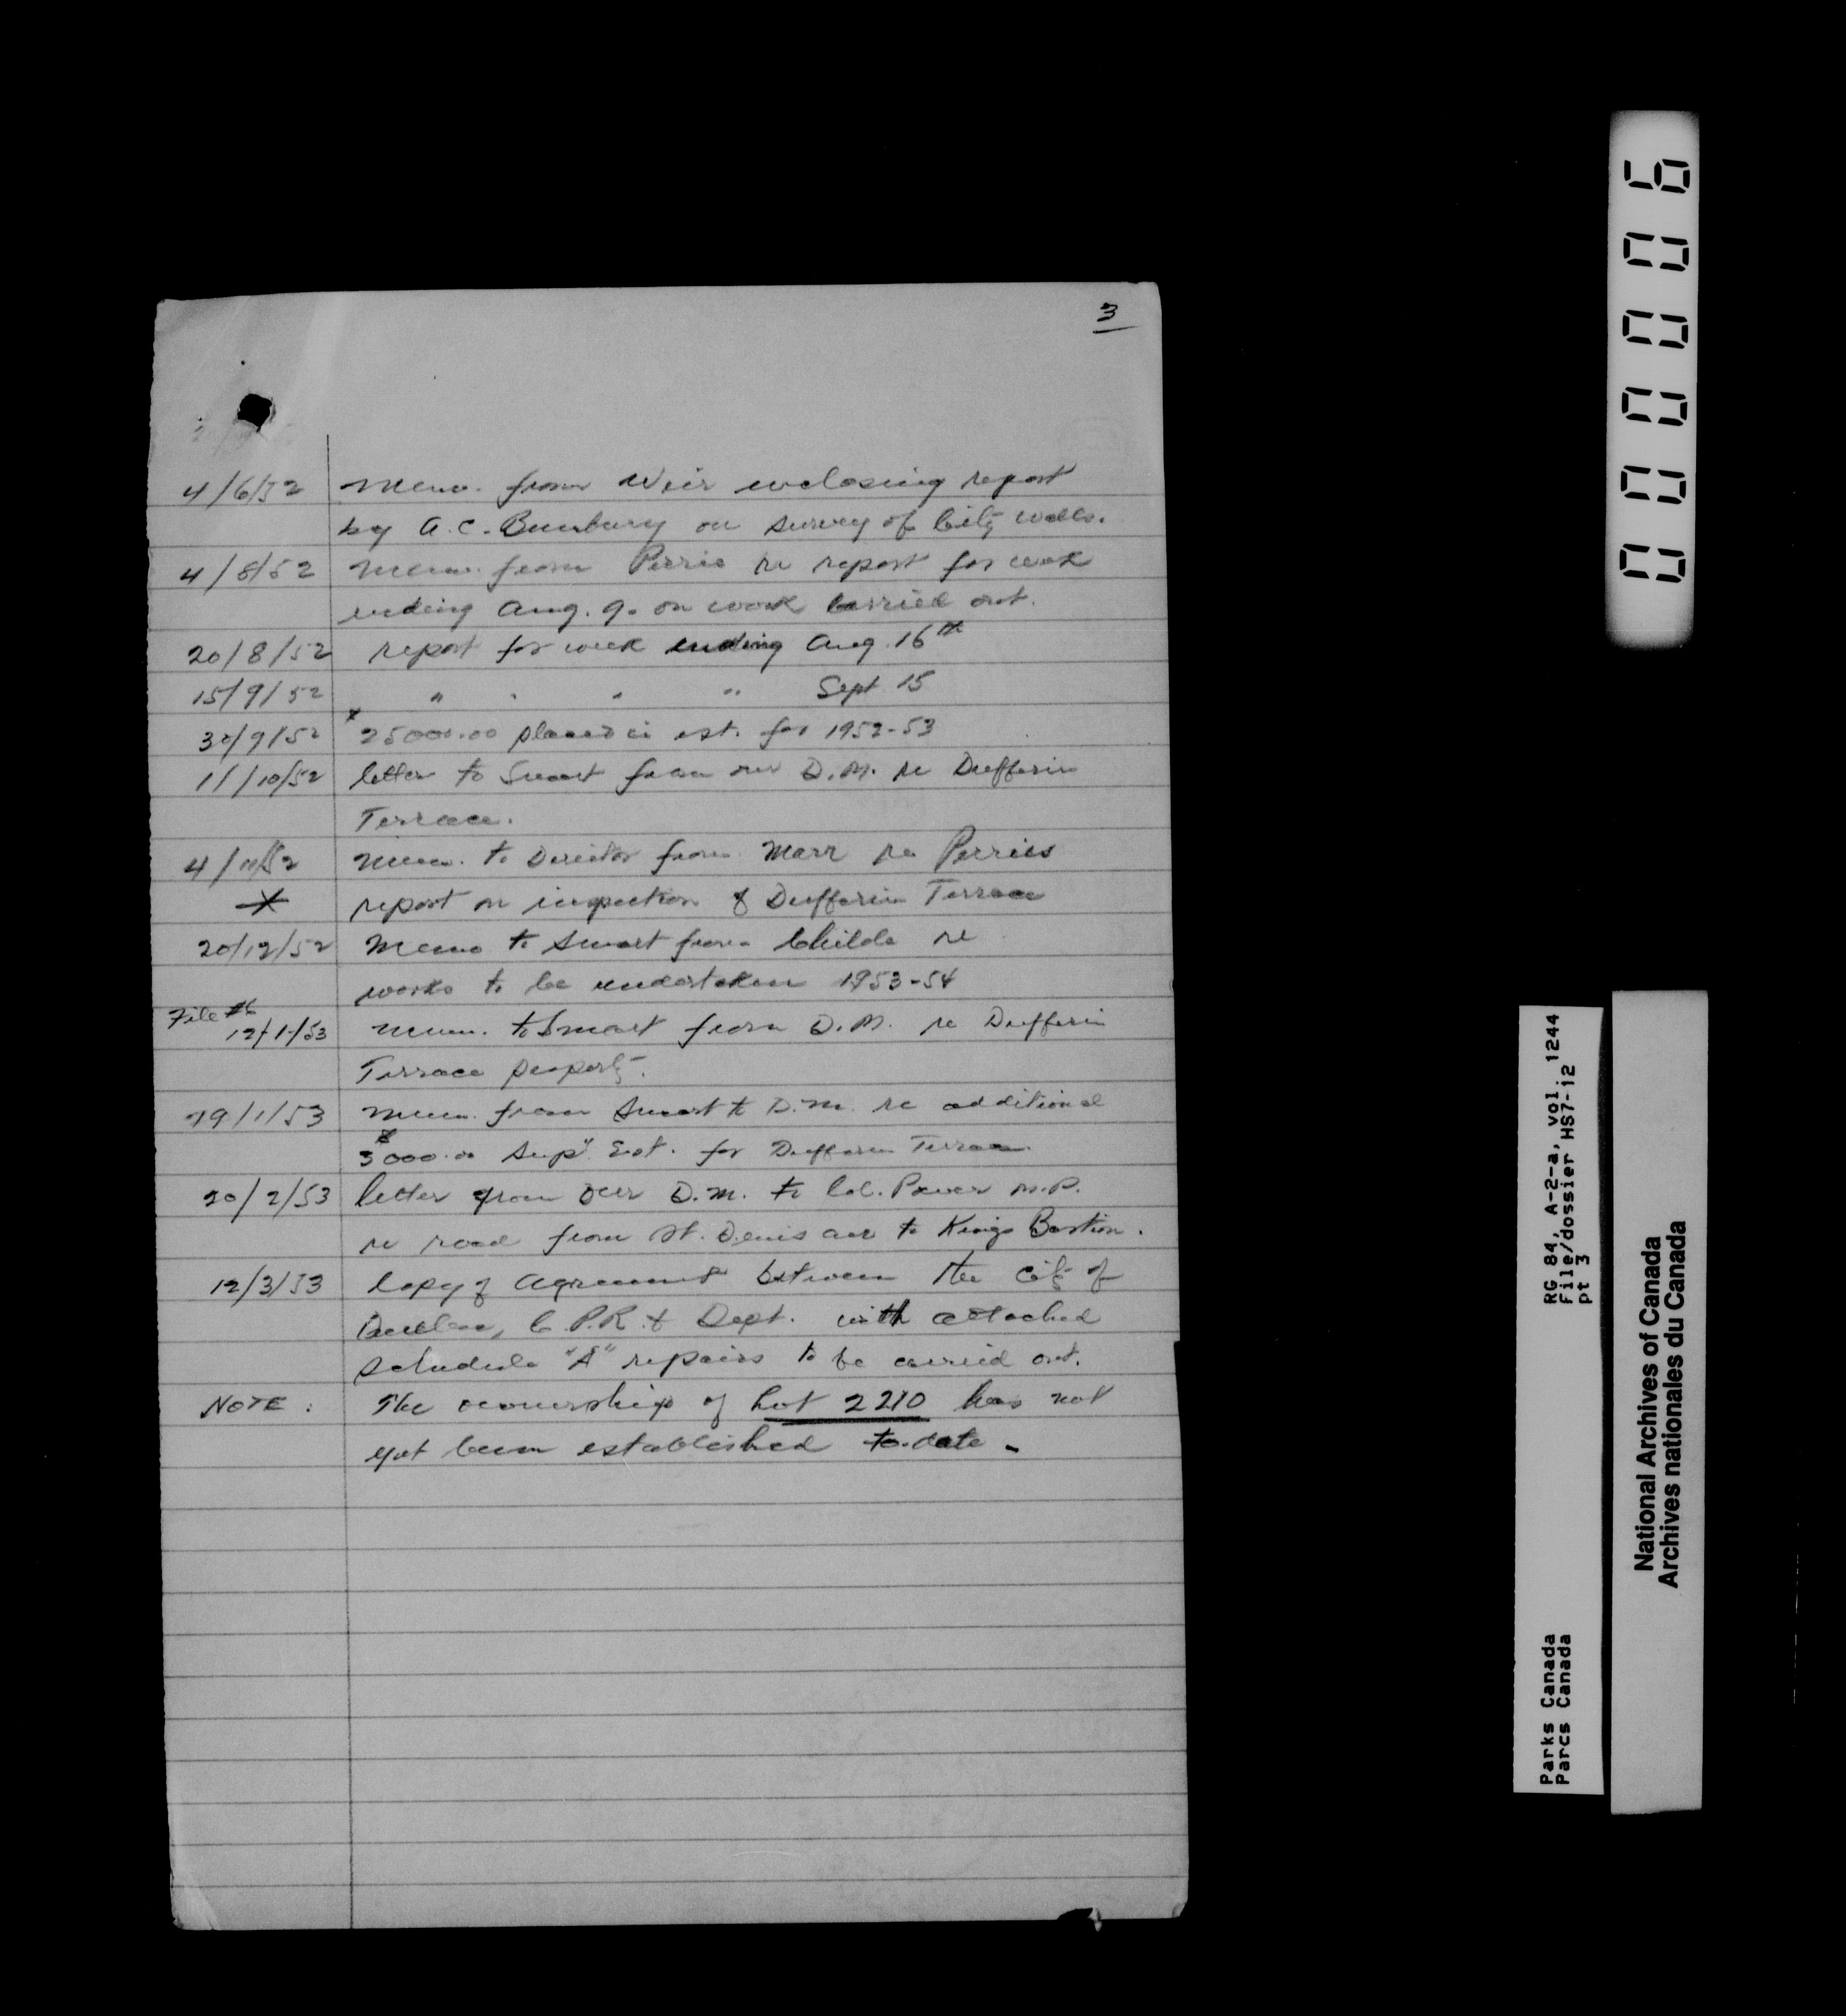 3
4/6/52 Memo. from Weir enclosing report
by A.C. Bunbury on survey of City walls.
4/8/52 Memo. from Perrie re report for week
ending Aug. 9. on work carried out.
20/8/52 report for week ending Aug. 16th
15/9/52 " " " " Sept 15
30/9/52 $25000.00 placed in est. for 1952-53
11/10/52 letter to Smart from our D.M. re Dufferin
Terrace.
4/11/52 Memo. to Director from Marr re Perries
* report on inspection of Dufferin Terrace
20/12/52 Memo to Smart from Childe re
works to be undertaken 1953-54
File #6
12/1/53 Memo. to Smart from D.M. re Dufferin
Terrace property.
19/1/53 Memo. from Smart to D.M. re additional
$3000.00 Sup" Est. for Dufferin Terrace
20/2/53 letter from our D.M. to Col. Power M.P.
re road from St. Denis ave to Kings Bastion.
12/3/53 Copy of Agreement between the City of
Quebec, C.P.R. & Dept. with attached
schedule "A" repairs to be carried out.
NOTE: The ownership of Lot 2210 has not
yet been established to-date.
000006
RG 84, A-2-a, vol. 1244
File/dossier HS7-12
pt 3
Parks Canada
Parcs Canada
National Archives of Canada
Archives nationales du Canada